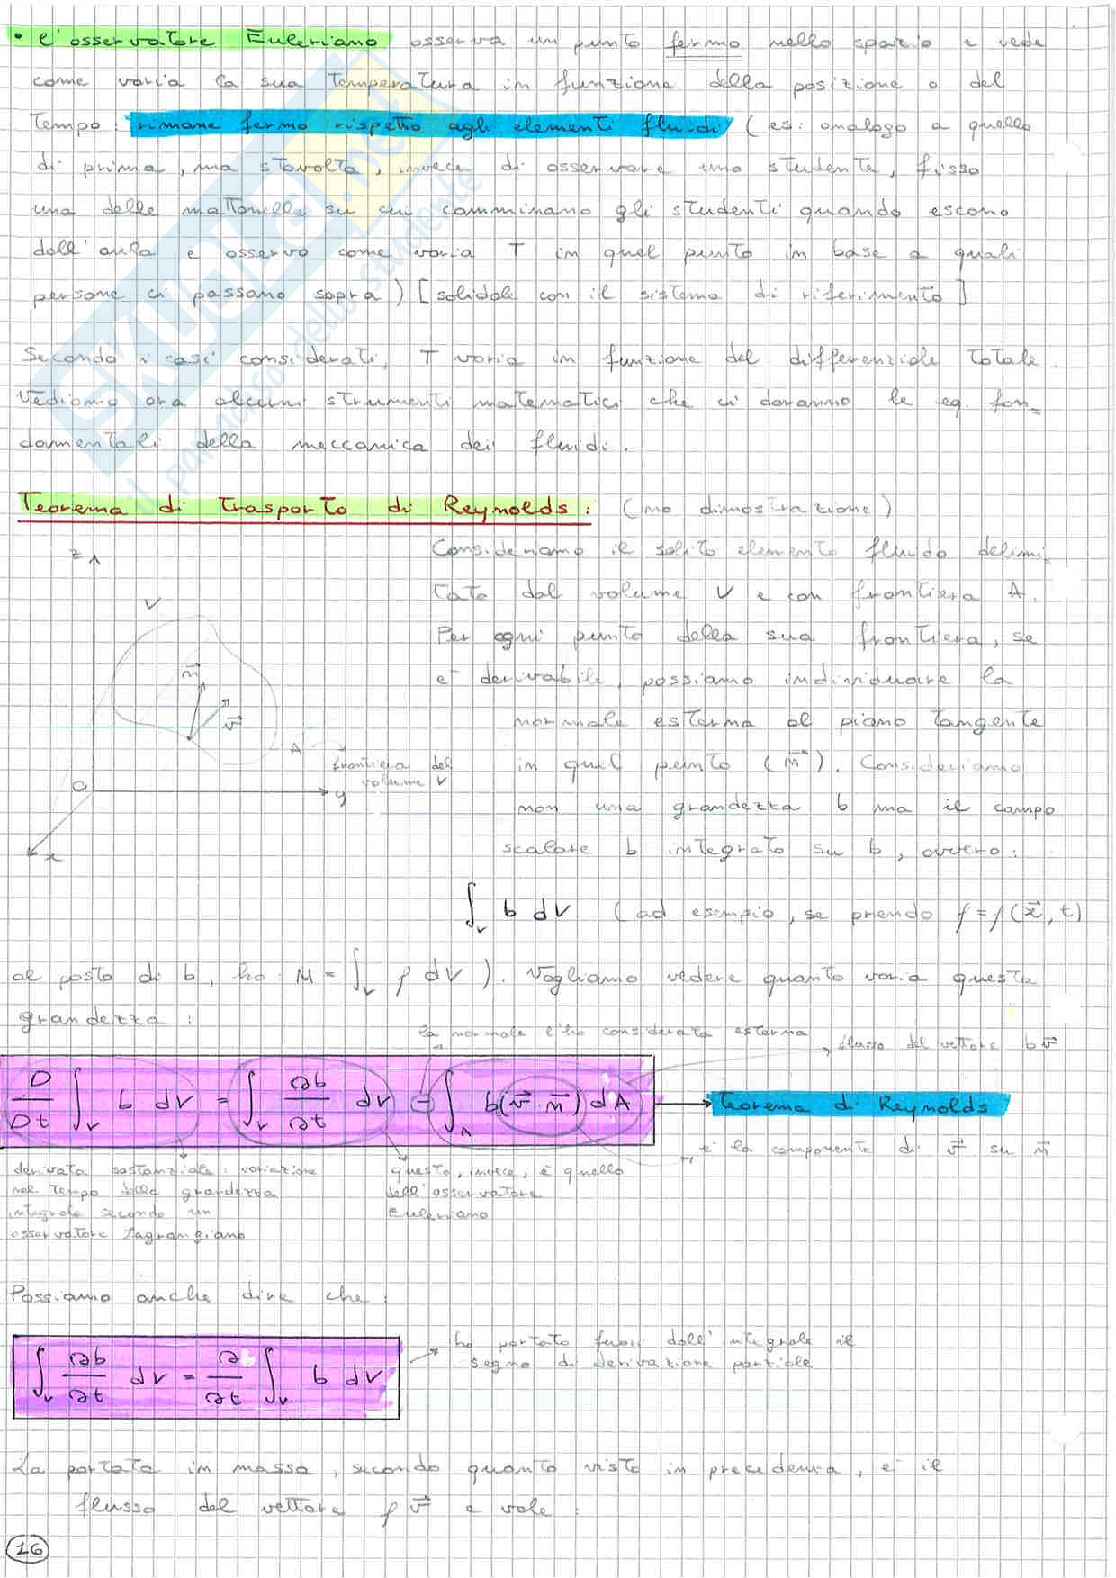 • L'osservatore Euleriano osserva un punto fermo nello spazio e vede
come varia la sua temperatura in funzione della posizione o del
tempo: rimane fermo rispetto agli elementi fluidi (es: analogo a quello
di prima, ma stavolta, invece di osservare uno studente, fisso
una delle mattonelle su cui camminano gli studenti quando escono
dall'aula e osservo come varia T in quel punto in base a quali
persone ci passano sopra) [solidale con il sistema di riferimento]
Secondo i casi considerati, T varia in funzione del differenziale totale.
Vediamo ora alcuni strumenti matematici che ci daranno le eq. fon=
damentali della meccanica dei fluidi.
Teorema di trasporto di Reynolds: (no dimostrazione)
Consideriamo il solito elemento fluido delimi=
tato dal volume V e con frontiera A.
Per ogni punto della sua frontiera, se
è derivabile, possiamo individuare la
normale esterna al piano tangente
in quel punto (n⃗). Consideriamo
non una grandezza b ma il campo
scalare b integrato su b, ovvero:
z
V
n⃗
v⃗
A
frontiera del
volume V
O
y
x
∫_V b dV (ad esempio, se prendo ρ=ρ(x⃗,t)
al posto di b, ho: M = ∫_V ρ dV). Vogliamo vedere quanto varia questa
grandezza:
la normale l'ho considerata esterna
flusso del vettore bv⃗
D/Dt ∫_V b dV = ∫_V ∂b/∂t dV − ∫_A b(v⃗ n⃗) dA → Teorema di Reynolds
è la componente di v⃗ su n⃗
derivata sostanziale: variazione
nel tempo della grandezza
integrale secondo un
osservatore Lagrangiano
questo, invece, è quello
dell'osservatore
Euleriano
Possiamo anche dire che:
∫_V ∂b/∂t dV = ∂/∂t ∫_V b dV
ho portato fuori dall'integrale il
segno di derivazione parziale
La portata in massa, secondo quanto visto in precedenza, è il
flusso del vettore ρv⃗ e vale:
16
SKUOLA.net
il paradiso dello studente